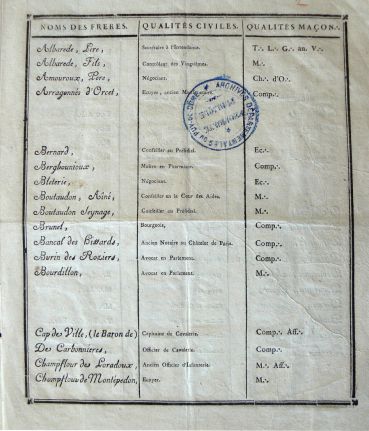 NOMS DES FRERES. QUALITÉS CIVILES. QUALITÉS MAÇON∴
Albarede, Pere, Secrétaire à l'Intendance. T∴ L∴ G∴ an. V∴
Albarede, Fils, Contrôleur des Vingtièmes. M∴
Amouroux, Pere, Négociant. Ch∴ d'O∴
Arragonnès d'Orcet, Ecuyer, ancien Comp∴
ARCHIVES DÉPARTEMENTALES DU PUY-DE-DÔME
Bernard, Conseiller au Présidial. Ec∴
Berghounioux, Maître en Pharmacie. Comp∴
Bleterie, Négociant. Ec∴
Boutaudon, Aîné, Conseiller en la Cour des Aides. M∴
Boutaudon Seynage, Conseiller au Présidial. M∴
Brunel, Bourgeois, Comp∴
Bancal des Issards, Ancien Notaire au Châtelet de Paris. Comp∴
Burin des Roziers, Avocat en Parlement. Comp∴
Bourdillon, Avocat en Parlement. M∴
Cap de Ville, (le Baron de) Capitaine de Cavalerie. Comp∴ Aff∴
Des Carbonnieres, Officier de Cavalerie. Comp∴
Champflour des Loradoux, Ancien Officier d'Infanterie. M∴ Aff∴
Champflour de Montépedon, Ecuyer. M∴